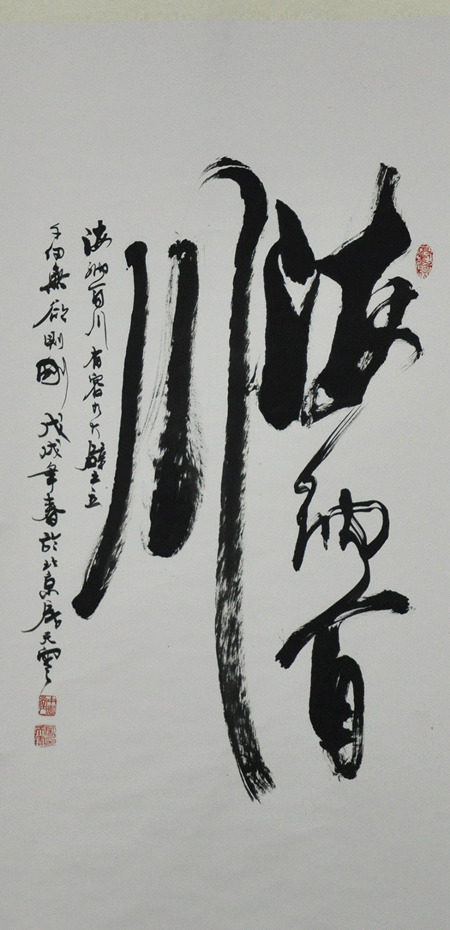 海纳百
川
海纳百川有容乃大壁立
千仞無欲則剛戊戌年春於北京